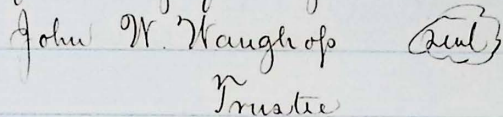 John W. Waughop (seal)
Trustee